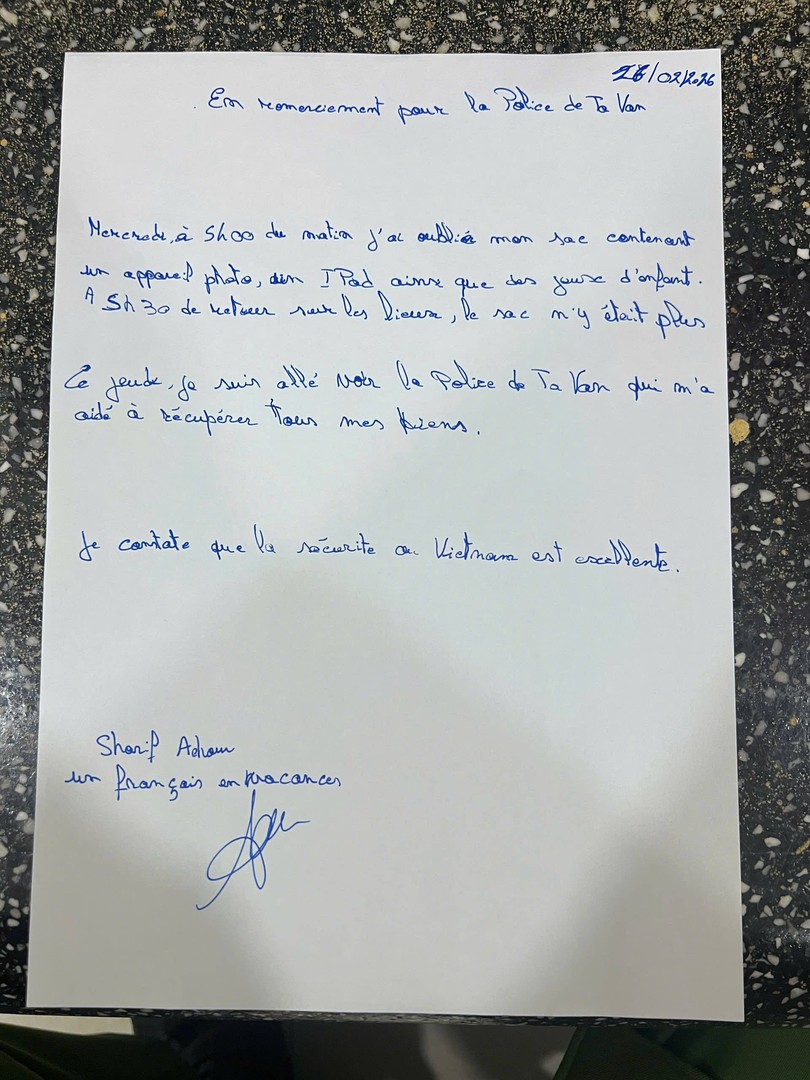 26/02/2026
En remerciement pour la Police de Ta Van
Mercredi, à 5h00 du matin j'ai oublié mon sac contenant
un appareil photo, un IPad ainsi que des jouets d'enfant.
A 5h30 de retour sur les lieux, le sac n'y était plus
Ce jeudi, je suis allé voir la Police de Ta Van qui m'a
aidé à récupérer tous mes biens.
Je contate que la sécurité au Vietnam est excellente.
Sharif Adam
un français en vacances